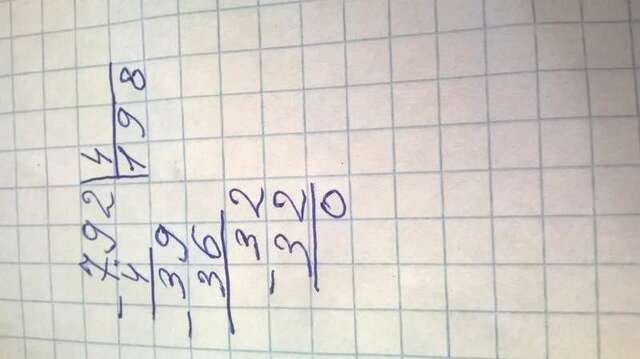 - 792 | 4
4 | 198
- 39
36
32
- 32
0